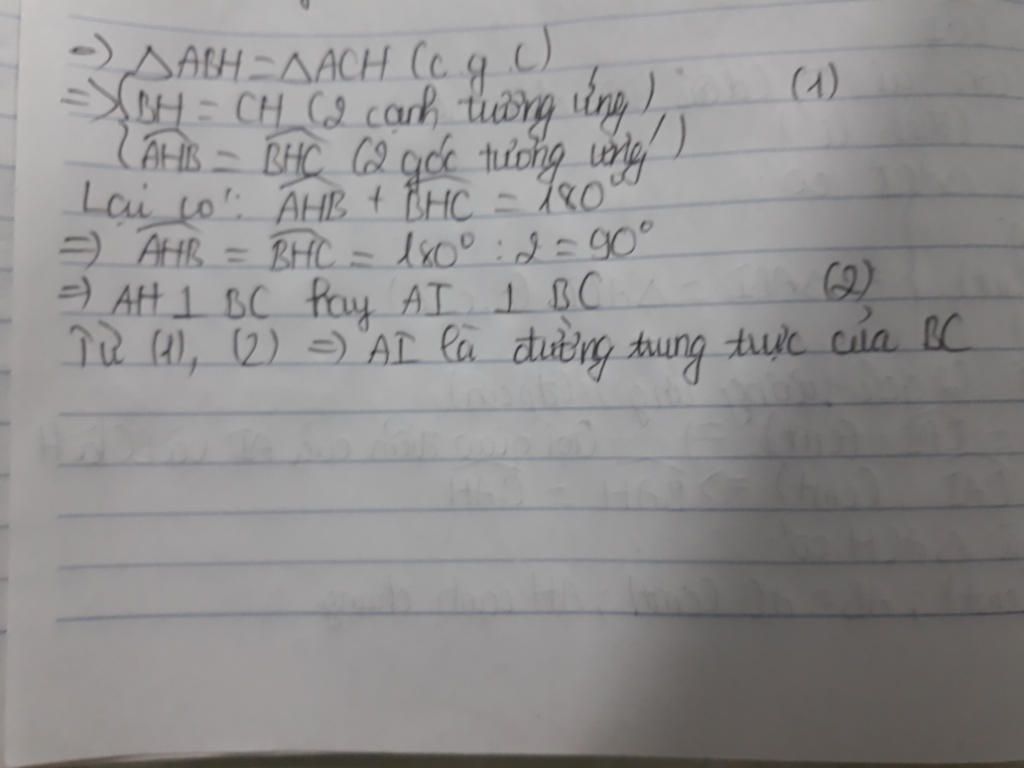 =) △ABH = △ACH (c.g.c)
=> { BH = CH (2 cạnh tương ứng) (1)
{ AHB = BHC (2 góc tương ứng)
Lại có: AHB + BHC = 180°
=) AHB = BHC = 180° : 2 = 90°
=) AH ⊥ BC hay AI ⊥ BC (2)
Từ (1), (2) => AI là đường trung trực của BC